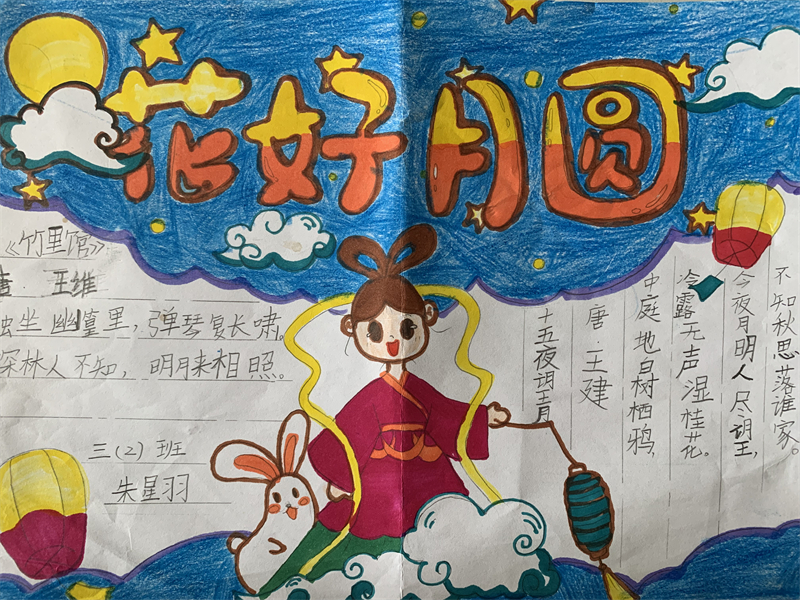 花好月圆
《竹里馆》
唐·王维
独坐幽篁里,弹琴复长啸。
深林人不知,明月来相照。
三(2)班
朱星羽
十五夜望月
唐·王建
中庭地白树栖鸦,
冷露无声湿桂花。
今夜月明人尽望,
不知秋思落谁家。